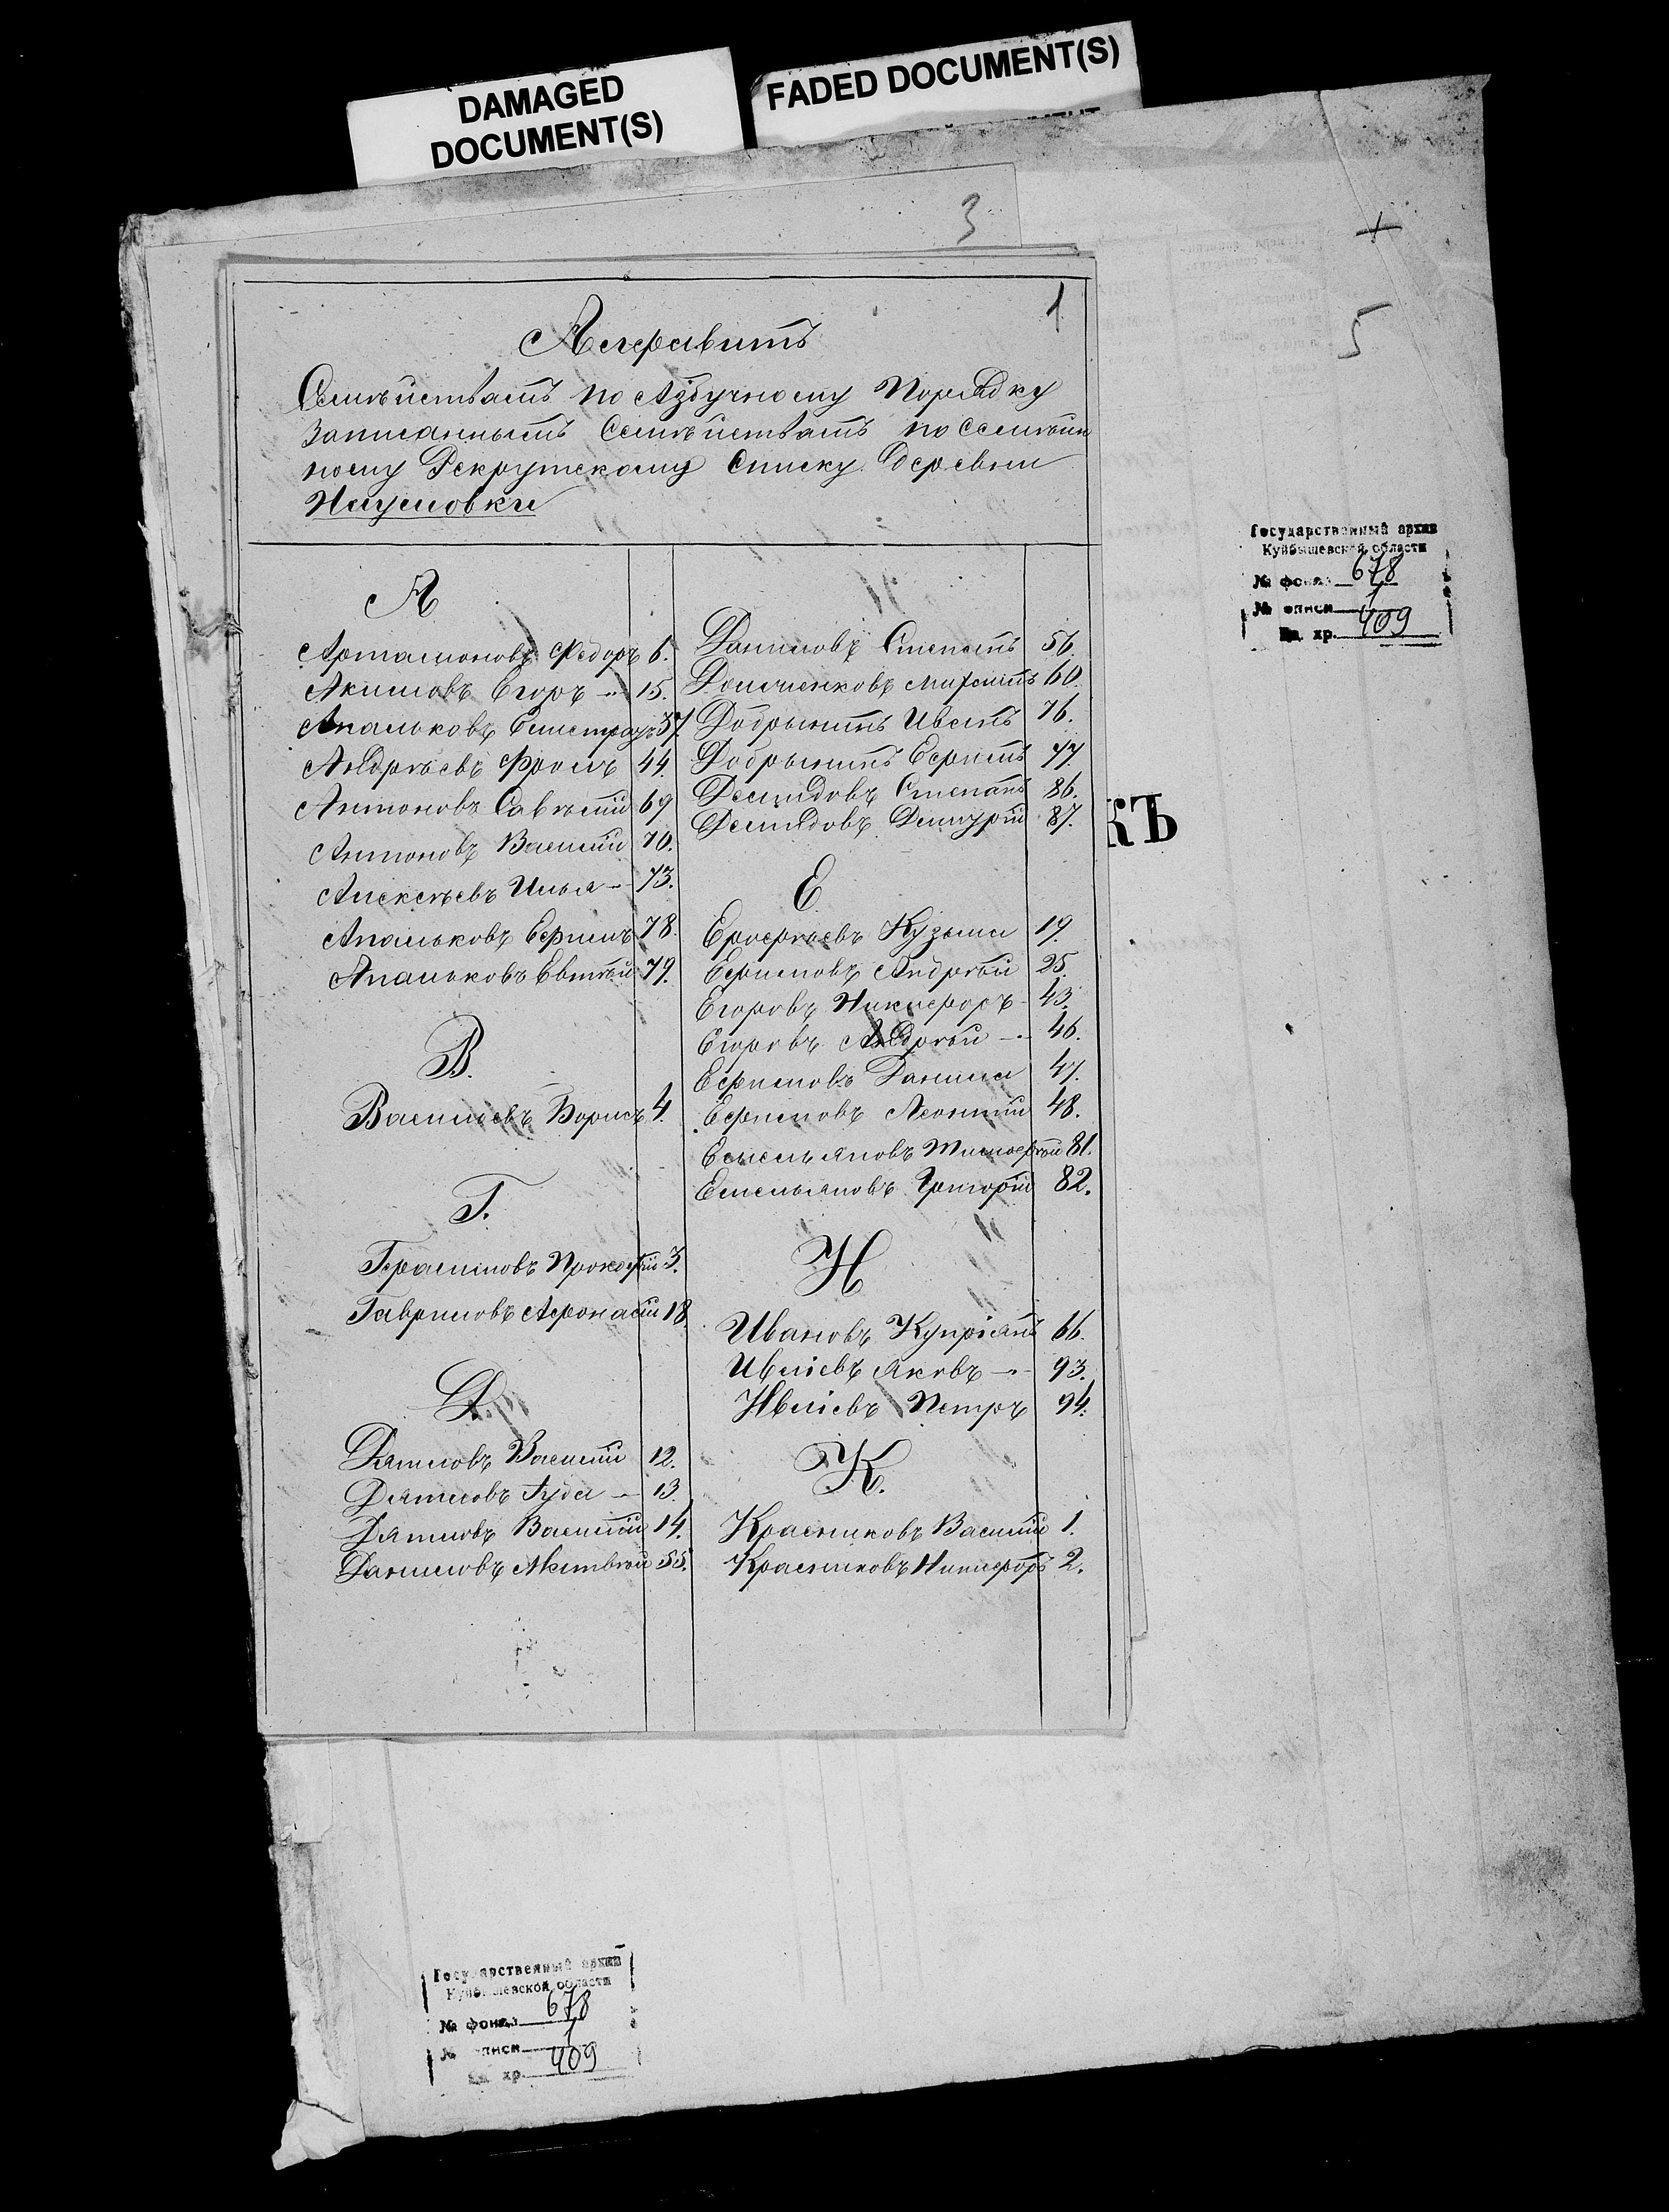 DAMAGED
DOCUMENT(S)
FADED DOCUMENT(S)
3
1
5
Алфавитъ
Семѣйствамъ по Азбучному Порядку
Записаннымъ Семѣйствамъ по Семѣй
ному Рекрутскому Списку деревни
Наумовки
А
Артамоновъ Федоръ 6.
Акимовъ Егоръ 15.
Апальковъ 37.
Андрѣевъ Фролъ 44.
Антоновъ Савѣлий 69
Антоновъ Василий 70.
Алексѣевъ Илья 73.
Апальковъ Ефимъ 78.
Апальковъ Евтѣй 79.
В.
Васильевъ Борисъ 4.
Г.
Герасимовъ Прокофий 3.
Гавриловъ Афонасий 18
Д.
Дятловъ Василий 12.
Дятловъ Іуда 13.
Дятловъ Василий 14.
Даниловъ Матвѣй 55.
Даниловъ Степанъ 56.
60.
Добрынинъ Иванъ 76.
Добрынинъ Ефимъ 77.
Демидовъ Степанъ 86.
Демидовъ Дмитрій 87.
Е
Ерофѣевъ Кузьма 19.
Ефимовъ Андрѣй 25.
Егоровъ Никифоръ 43.
Егоровъ Андрѣй 46.
Ефимовъ Данила 47.
Ефимовъ Леонтий 48.
Емельяновъ Тимофѣй 81.
Емельяновъ Григорій 82.
И
Ивановъ Купріянъ 66.
Ивлiевъ Яковъ 93.
Ивлiевъ Петръ 94.
К.
Красниковъ Василий 1.
Красниковъ Никифоръ 2.
КЪ
Государственный архив
Куйбышевской области
№ фонда 678
№ описи 1
Ед. хр. 409
Государственный архив
Куйбышевской области
№ фонда 678
№ описи 1
Ед. хр. 409